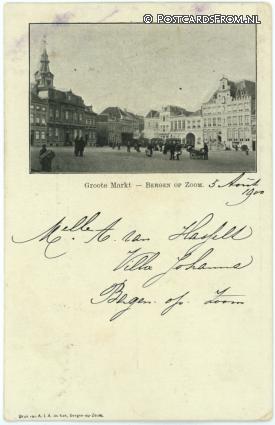 © PostcardsFrom.nl
Groote Markt — Bergen op Zoom.
5 Août
1900
Melle A. van Hasselt
Villa Johanna
Bergen. op. Zoom
Druk van A. J. A. de Kok, Bergen-op-Zoom.